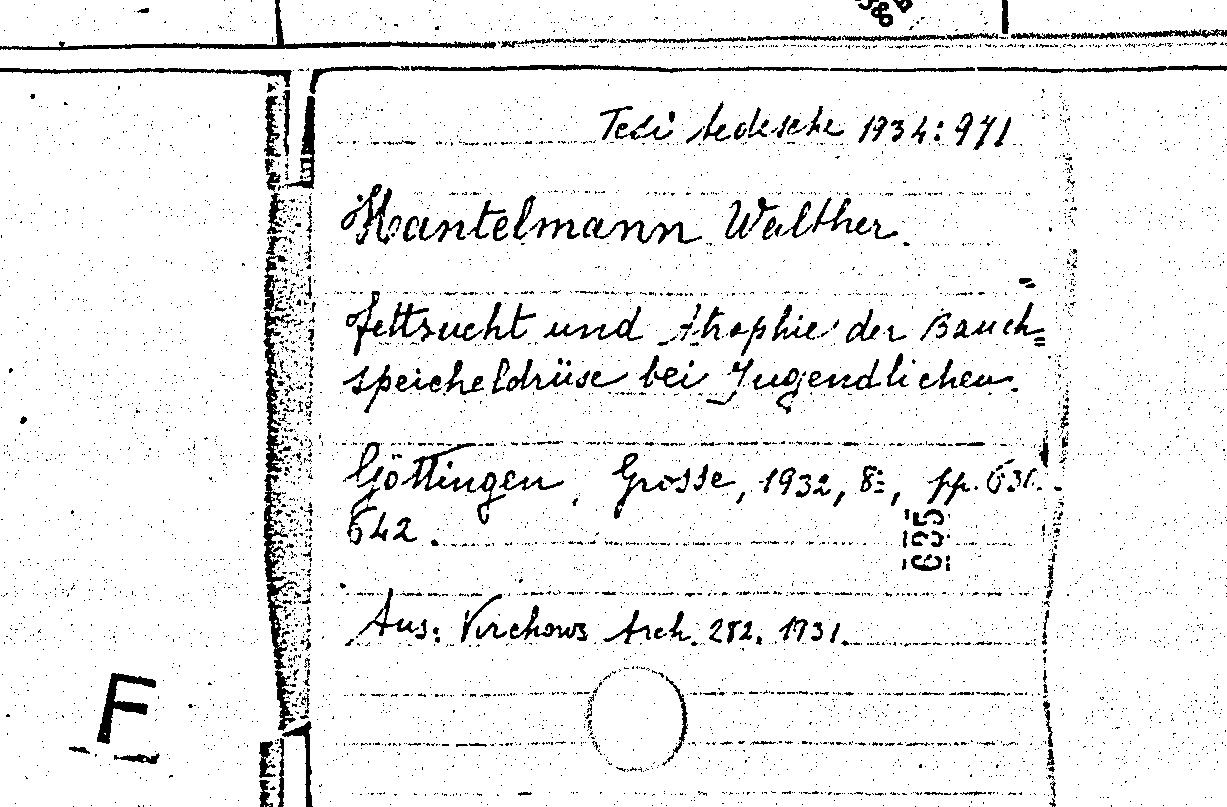 Tesi tedesche 1934:971
Hantelmann Walther.
Fettsucht und Atrophie der Bauch=
speicheldrüse bei Jugendlichen.
Göttingen, Grosse, 1932, 8º, pp. 630-
642.
695
Aus: Virchows Arch. 282. 1931.
F